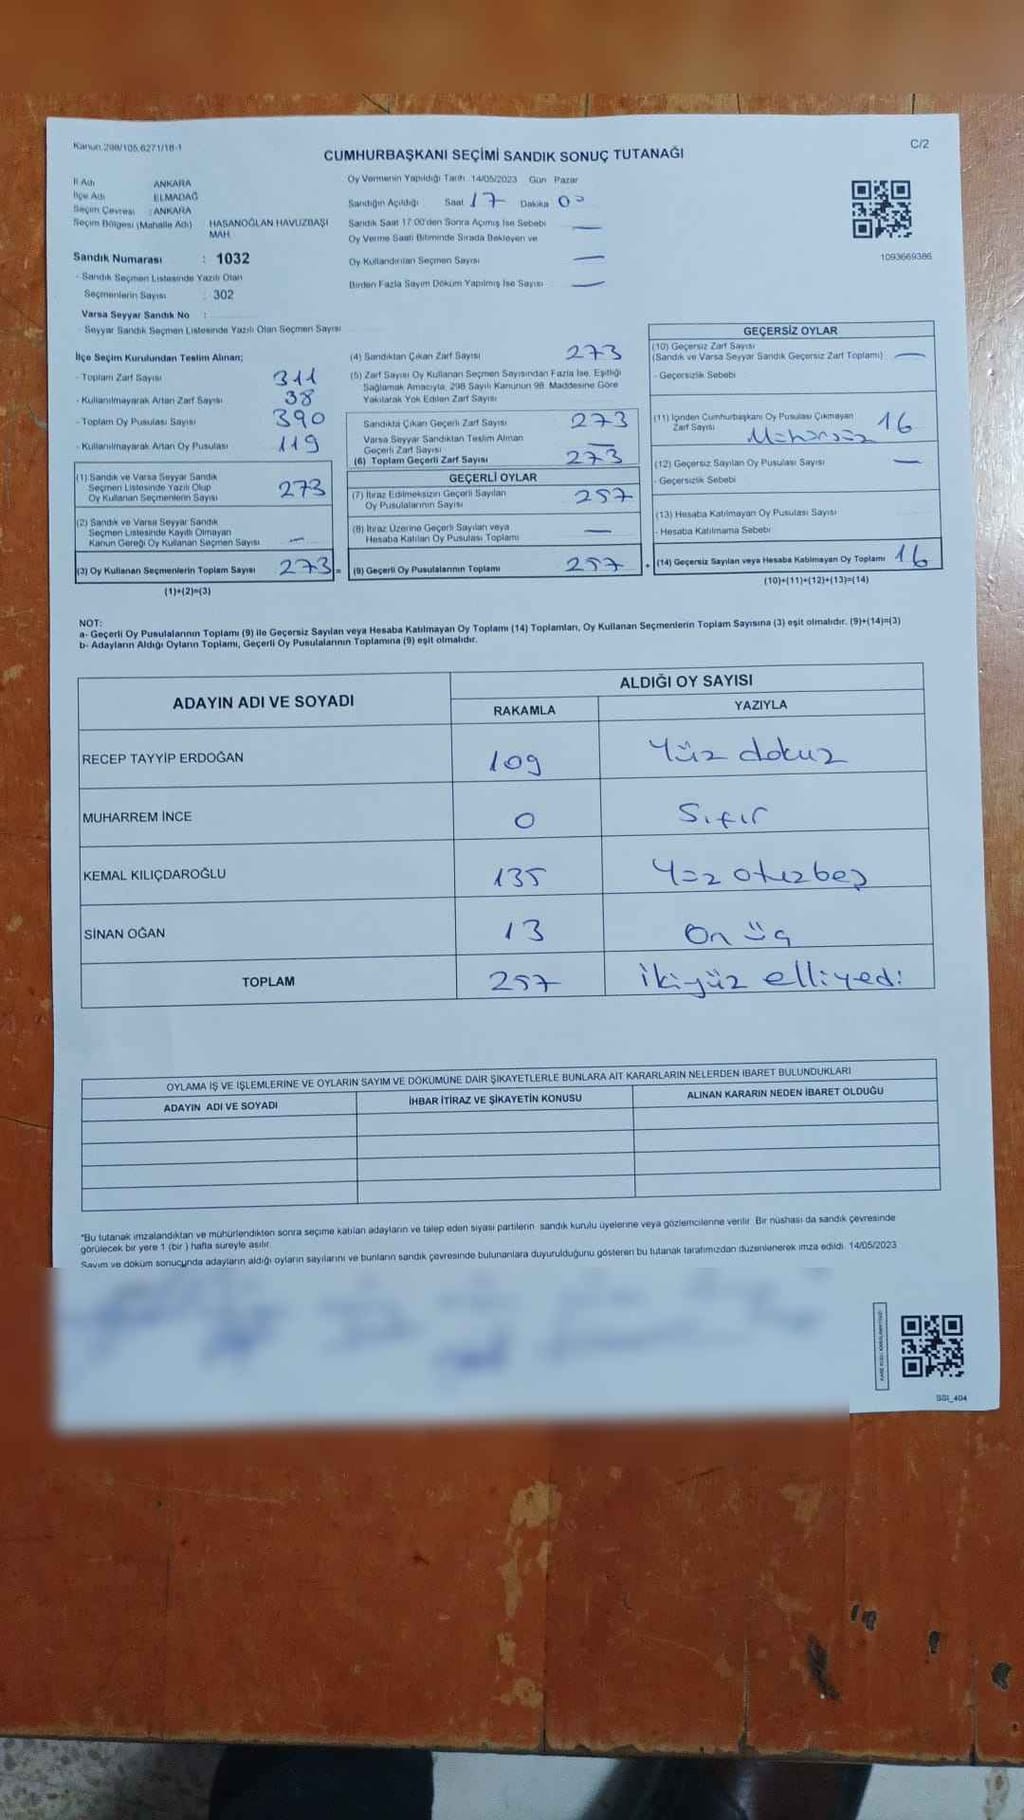 Kanun 298/105,6271/18-1
C/2
CUMHURBAŞKANI SEÇİMİ SANDIK SONUÇ TUTANAĞI
İl Adı ANKARA
İlçe Adı ELMADAĞ
Seçim Çevresi : ANKARA
Seçim Bölgesi (Mahalle Adı) HASANOĞLAN HAVUZBAŞI MAH.
Sandık Numarası : 1032
- Sandık Seçmen Listesinde Yazılı Olan
Seçmenlerin Sayısı : 302
Varsa Seyyar Sandık No :
- Seyyar Sandık Seçmen Listesinde Yazılı Olan Seçmen Sayısı
Oy Vermenin Yapıldığı Tarih 14/05/2023 Gün Pazar
Sandığın Açıldığı Saat 17 Dakika 00
Sandık Saat 17:00'den Sonra Açılmış İse Sebebi —
Oy Verme Saati Bitiminde Sırada Bekleyen ve
Oy Kullandırılan Seçmen Sayısı —
Birden Fazla Sayım Döküm Yapılmış İse Sayısı —
1093669386
İlçe Seçim Kurulundan Teslim Alınan;
- Toplam Zarf Sayısı 311
- Kullanılmayarak Artan Zarf Sayısı 38
- Toplam Oy Pusulası Sayısı 390
- Kullanılmayarak Artan Oy Pusulası 119
(1) Sandık ve Varsa Seyyar Sandık
Seçmen Listesinde Yazılı Olup
Oy Kullanan Seçmenlerin Sayısı 273
(2) Sandık ve Varsa Seyyar Sandık
Seçmen Listesinde Kayıtlı Olmayan
Kanun Gereği Oy Kullanan Seçmen Sayısı —
(3) Oy Kullanan Seçmenlerin Toplam Sayısı 273 =
(1)+(2)=(3)
(4) Sandıktan Çıkan Zarf Sayısı 273
(5) Zarf Sayısı Oy Kullanan Seçmen Sayısından Fazla İse, Eşitliği
Sağlamak Amacıyla, 298 Sayılı Kanunun 98. Maddesine Göre
Yakılarak Yok Edilen Zarf Sayısı
Sandıkta Çıkan Geçerli Zarf Sayısı 273
Varsa Seyyar Sandıktan Teslim Alınan
Geçerli Zarf Sayısı —
(6) Toplam Geçerli Zarf Sayısı 273
GEÇERLİ OYLAR
(7) İtiraz Edilmeksizin Geçerli Sayılan
Oy Pusulalarının Sayısı 257
(8) İtiraz Üzerine Geçerli Sayılan veya
Hesaba Katılan Oy Pusulası Toplamı —
(9) Geçerli Oy Pusulalarının Toplamı 257 +
GEÇERSİZ OYLAR
(10) Geçersiz Zarf Sayısı
(Sandık ve Varsa Seyyar Sandık Geçersiz Zarf Toplamı) —
- Geçersizlik Sebebi
(11) İçinden Cumhurbaşkanı Oy Pusulası Çıkmayan
Zarf Sayısı 16
Mühürsüz
(12) Geçersiz Sayılan Oy Pusulası Sayısı —
- Geçersizlik Sebebi
(13) Hesaba Katılmayan Oy Pusulası Sayısı
- Hesaba Katılmama Sebebi
(14) Geçersiz Sayılan veya Hesaba Katılmayan Oy Toplamı 16
(10)+(11)+(12)+(13)=(14)
NOT:
a- Geçerli Oy Pusulalarının Toplamı (9) ile Geçersiz Sayılan veya Hesaba Katılmayan Oy Toplamı (14) Toplamları, Oy Kullanan Seçmenlerin Toplam Sayısına (3) eşit olmalıdır. (9)+(14)=(3)
b- Adayların Aldığı Oyların Toplamı, Geçerli Oy Pusulalarının Toplamına (9) eşit olmalıdır.
ADAYIN ADI VE SOYADI ALDIĞI OY SAYISI
RAKAMLA YAZIYLA
RECEP TAYYİP ERDOĞAN 109 Yüz dokuz
MUHARREM İNCE 0 Sıfır
KEMAL KILIÇDAROĞLU 135 Yüz otuzbeş
SİNAN OĞAN 13 On üç
TOPLAM 257 ikiyüz elliyedi
OYLAMA İŞ VE İŞLEMLERİNE VE OYLARIN SAYIM VE DÖKÜMÜNE DAİR ŞİKAYETLERLE BUNLARA AİT KARARLARIN NELERDEN İBARET BULUNDUKLARI
ADAYIN ADI VE SOYADI İHBAR İTİRAZ VE ŞİKAYETİN KONUSU ALINAN KARARIN NEDEN İBARET OLDUĞU
*Bu tutanak imzalandıktan ve mühürlendikten sonra seçime katılan adayların ve talep eden siyasi partilerin sandık kurulu üyelerine veya gözlemcilerine verilir. Bir nüshası da sandık çevresinde
görülecek bir yere 1 (bir) hafta süreyle asılır.
Sayım ve döküm sonucunda adayların aldığı oyların sayılarını ve bunların sandık çevresinde bulunanlara duyurulduğunu gösteren bu tutanak tarafımızdan düzenlenerek imza edildi. 14/05/2023
SSI_404